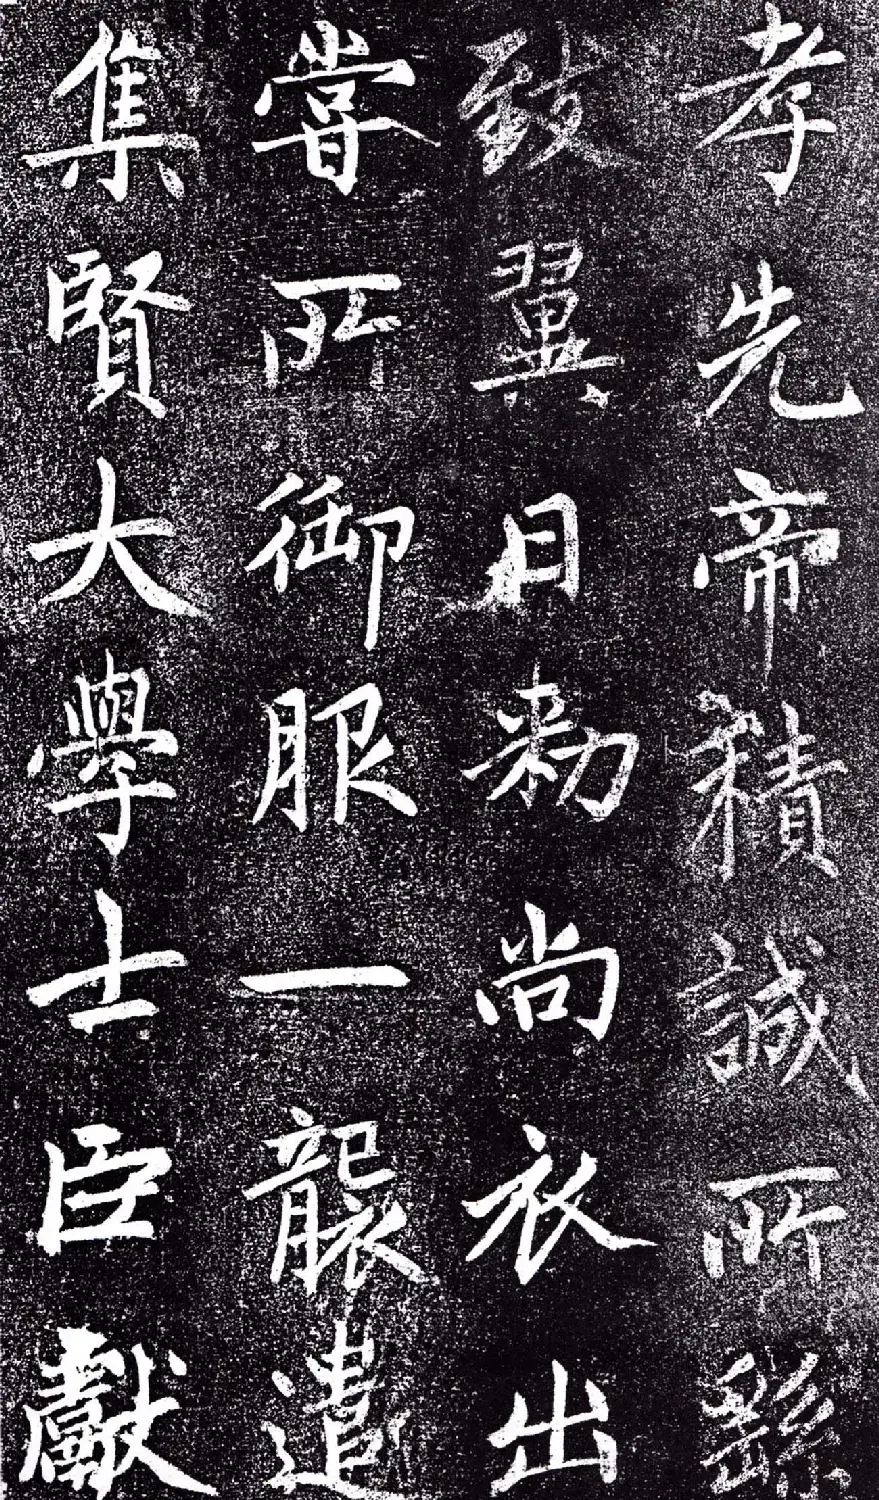 孝先帝積誠所繇
致翼日勑尚衣出
嘗所御服一襲遣
集賢大學士臣獻